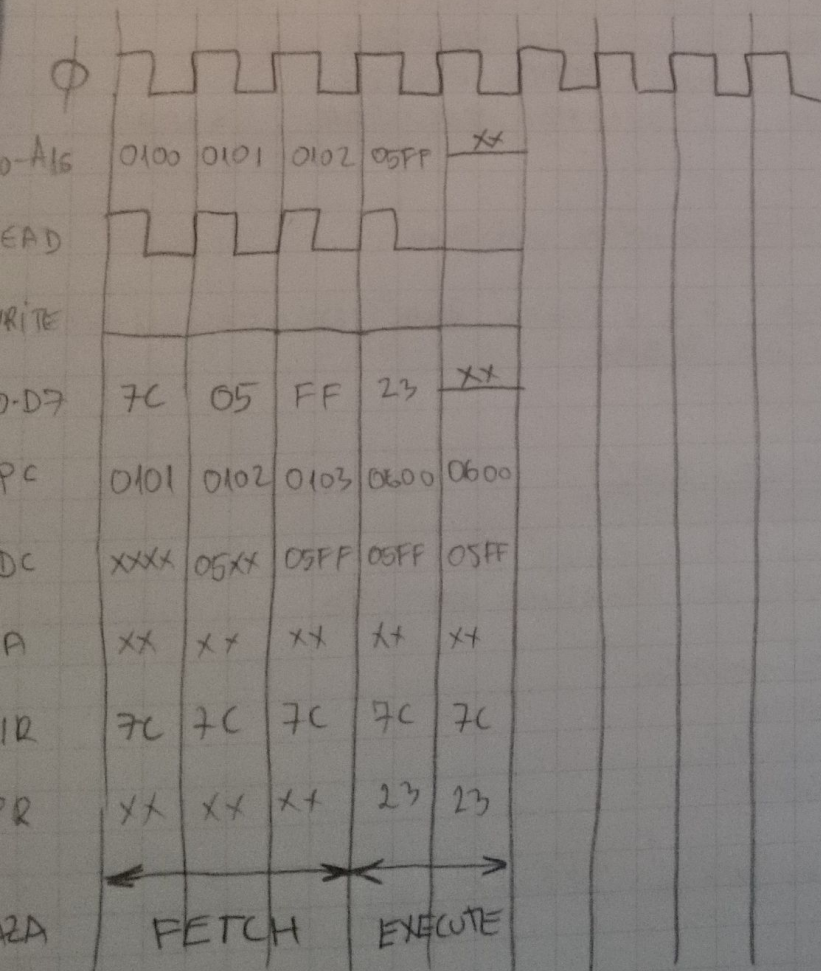 ϕ
0-A15 0100 0101 0102 05FF xx
EAD
RITE
0-D7 7C 05 FF 23 xx
PC 0101 0102 0103 0600 0600
DC xxxx 05xx 05FF 05FF 05FF
A xx xx xx xx xx
IR 7C 7C 7C 7C 7C
PR xx xx xx 23 23
AZA FETCH EXECUTE